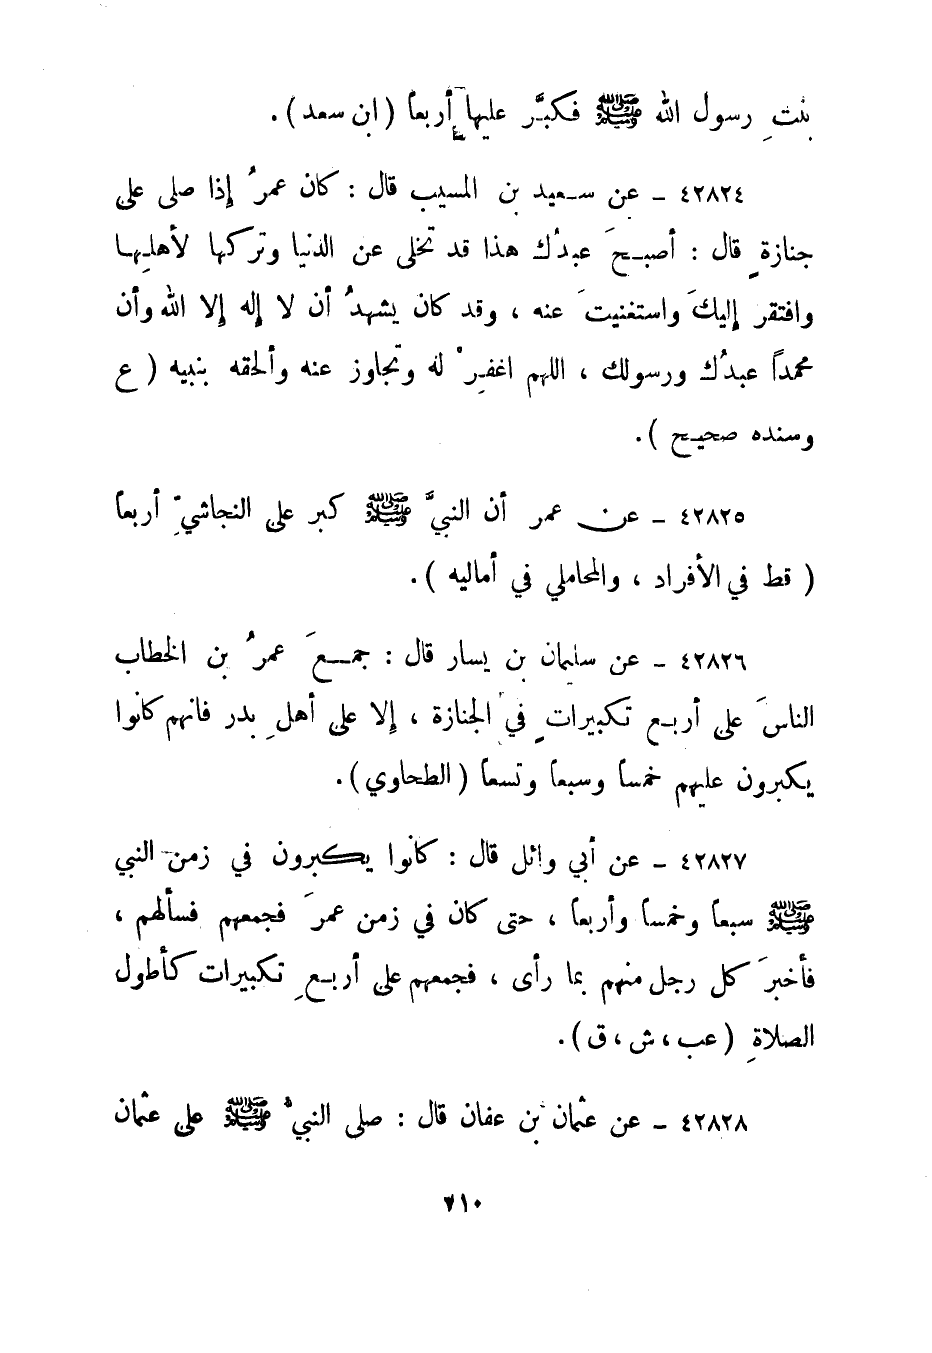 بنتِ رسول الله ﷺ فكبَّر عليها أربعاً (ابن سعد).
٤٢٨٢٤ - عن سعيد بن المسيب قال : كان عمرُ إذا صلى على
جنازةٍ قال : أصبحَ عبدُك هذا قد تخلى عن الدنيا وتركها لأهلِها
وافتقر إليكَ واستغنيتَ عنه ، وقد كان يشهدُ أن لا إله إلا الله وأن
محمداً عبدُك ورسولك ، اللهم اغفِرْ له وتجاوز عنه وألحقه بنبيه ( ع
وسنده صحيح ).
٤٢٨٢٥ - عن عمر أن النبيَّ ﷺ كبر على النجاشيِّ أربعاً
( قط في الأفراد ، والمحاملي في أماليه ).
٤٢٨٢٦ - عن سليمان بن يسار قال : جمعَ عمرُ بن الخطاب
الناسَ على أربع تكبيراتٍ في الجنازة ، إلا على أهلِ بدر فانهم كانوا
يكبرون عليهم خمساً وسبعاً وتسعاً (الطحاوي).
٤٢٨٢٧ - عن أبي وائل قال : كانوا يكبرون في زمن النبي
ﷺ سبعاً وخمساً وأربعاً ، حتى كان في زمن عمرَ فجمعهم فسألهم ،
فأخبرَ كل رجل منهم بما رأى ، فجمعهم على أربعِ تكبيرات كأطول
الصلاةِ (عب ، ش ، ق).
٤٢٨٢٨ - عن عثمان بن عفان قال : صلى النبيُّ ﷺ على عثمان
٧١٠